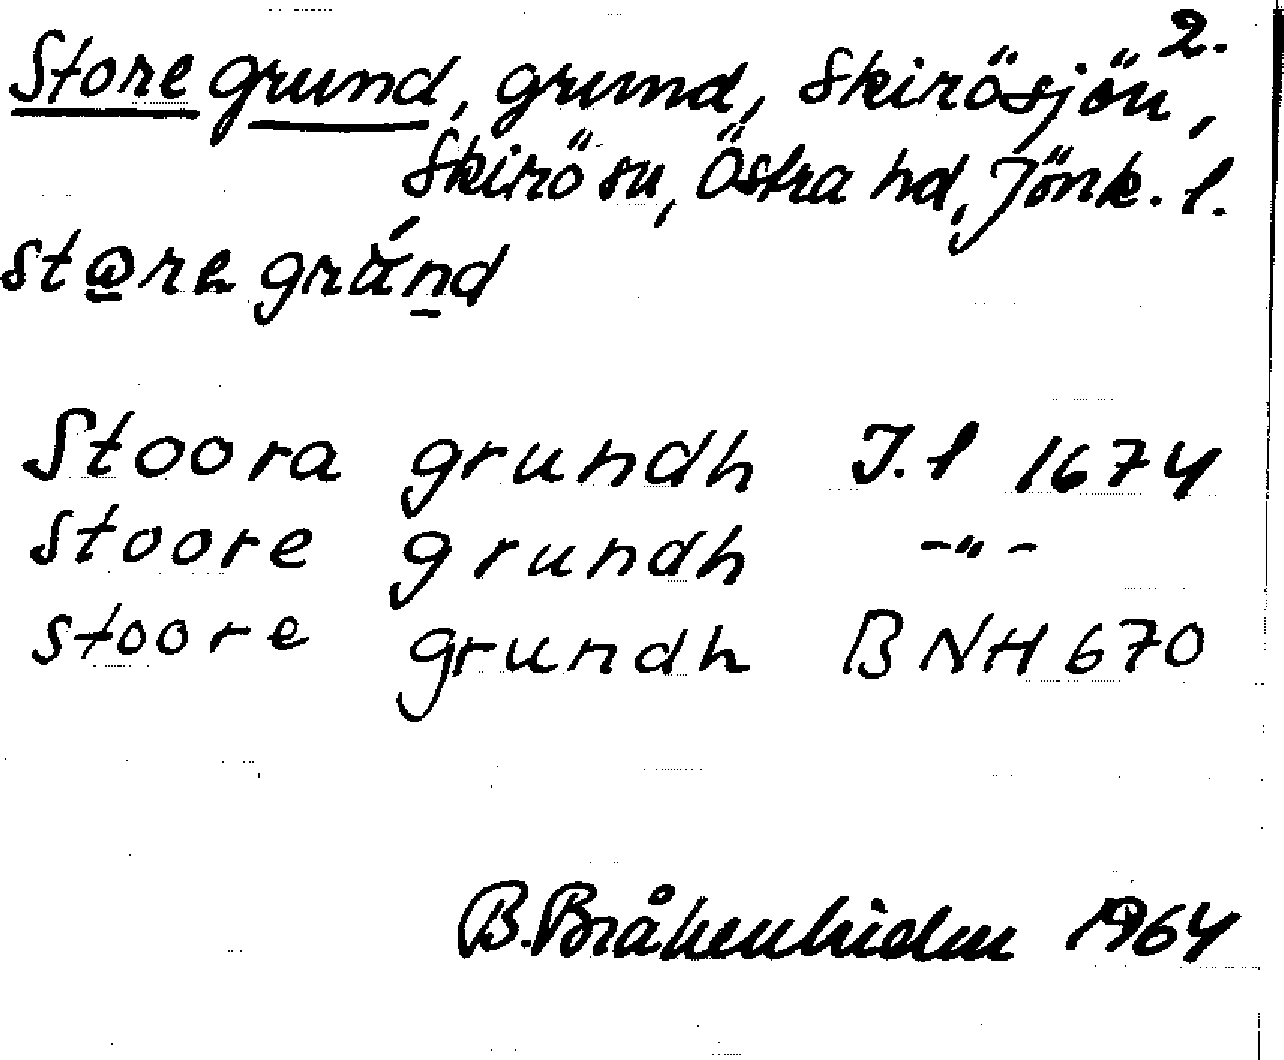 2.
Store grund, grund, Skirösjön,
Skirö sn, Östra hd, Jönk. l.
store grúnd
Stoora grundh J. l 1674
Stoore grundh -"-
stoore grundh BNH 670
B. 1964